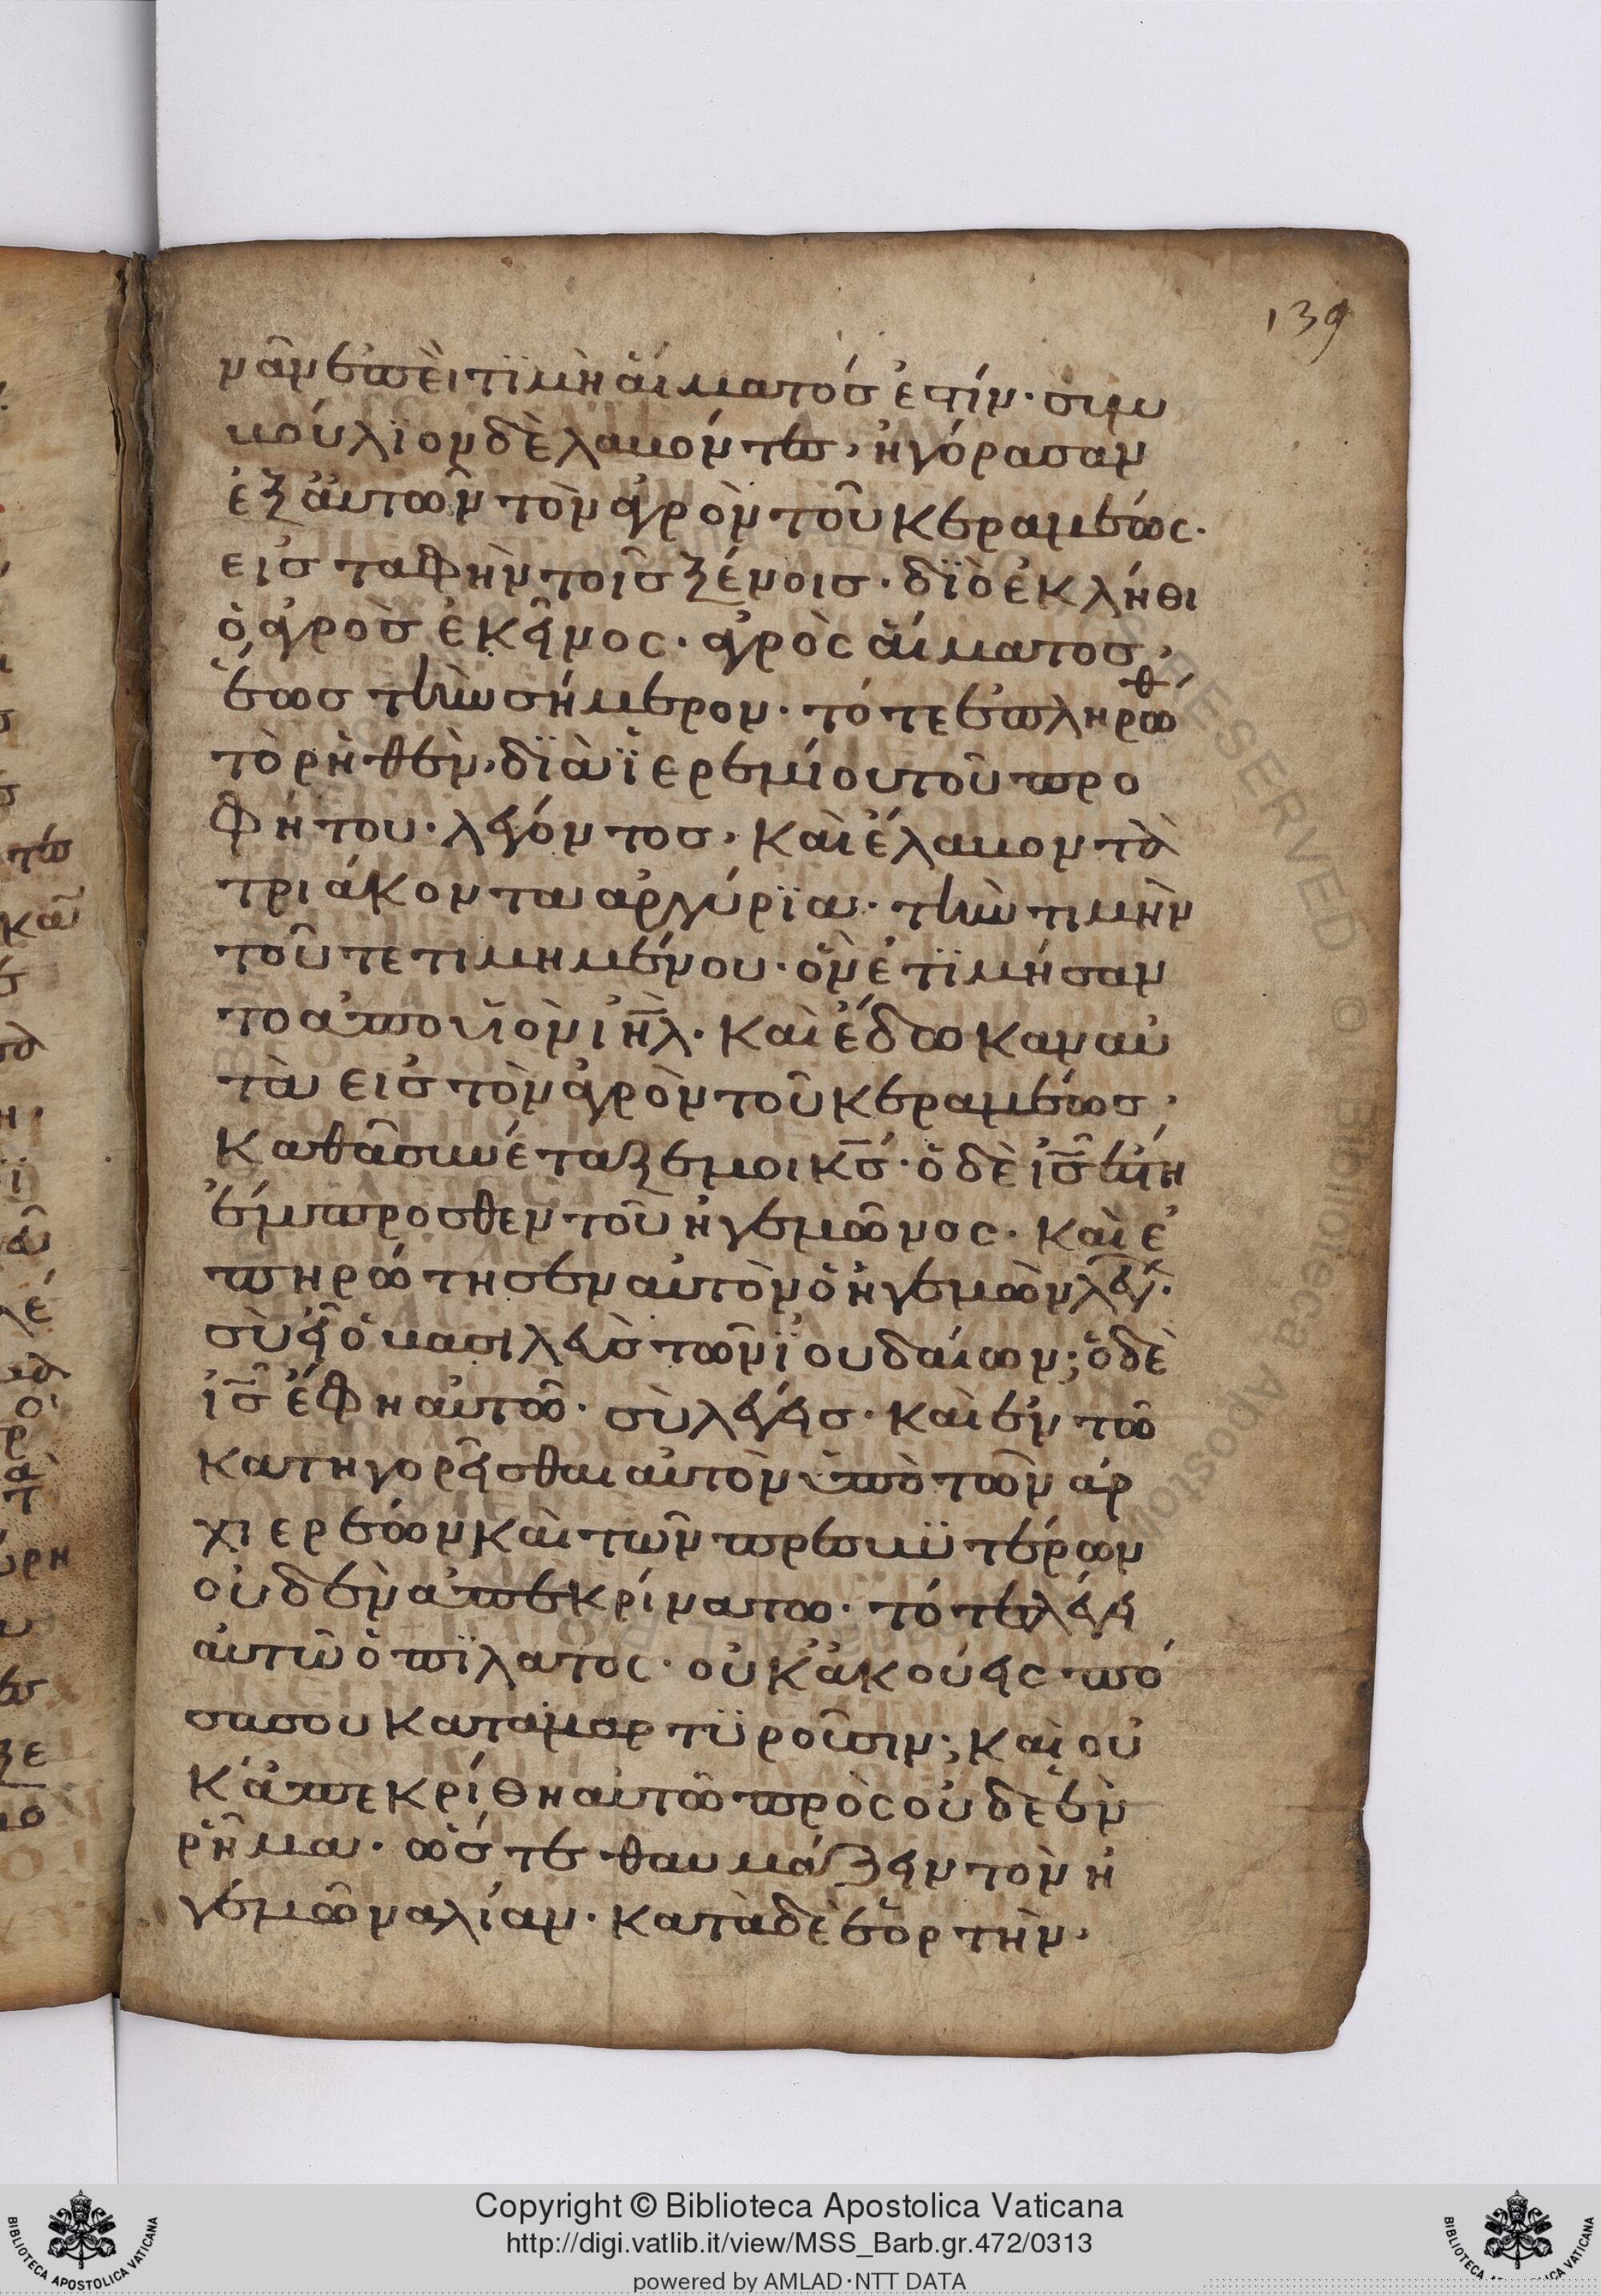 139
νᾶν ἐπεὶ τϊμὴ αἵματόσ ἐστίν· συμ
βούλϊον δὲ λαβόντεσ, ἠγόρασαν
ἐξ ἀυτῶν τὸν ἀγρὸν τοῦ κεραμέως·
εισ ταφὴν τοῖσ ξένοισ· δϊὸ ἐκλήθι
ὁ ἀγρὸσ ἐκεῖνος· ἀγρὸς ἅιματοσ,
ἕωσ τὴν σήμερον· τότε ἐπληρώθ
τὸ ρηθὲν, δϊὰ ϊερεμίου τοῦ προ
φήτου· λέγόντοσ, καὶ ἔλαβον τὰ
τριάκοντα αργύρϊα· τὴν τιμὴν
τοῦ τετιμημένου· ὃν ἐτϊμήσαν
το ἀπο υἱὸν ιη̅λ· καὶ ἔδωκαν αὐ
τὰ εισ τὸν ἀγρὸν τοῦ κεραμέωσ,
καθὰ συνέταξεν μοι κ̅σ· ὁ δὲ ι̅σ ἔστη
ἔμπροσθεν τοῦ ἡγεμῶνος· καὶ ἐ
πηρώτησεν αὐτὸν ὁ ἡγεμὼν λεγ·
σὺ εἶ ὁ βασιλεὺσ τῶν ϊουδαίων; ὁ δὲ
ι̅σ ἔφη αὐτῶ· σὺ λέγεισ· καὶ ἐν τῶ
κατηγορεῖσθαι αὐτὸν ὑπὸ τῶν ἀρ
χιερέων καὶ τῶν πρεσβϋτέρων
οὐδὲν ἀπεκρίνατω· τότε λέγει
ἀυτῶ ὁ πϊλατος· οὐκ ἀκούεις πό
σα σου καταμαρτϋροῦσιν; καὶ οὐ
κ ἀπεκρίθη αὐτῶ πρὸς οὐδὲ ἓν
ρῆμα· ὥστε θαυμάζειν τὸν ἡ
γεμῶνα λίαν· κατὰ δὲ ἑορτὴν,
Copyright © Biblioteca Apostolica Vaticana
http://digi.vatlib.it/view/MSS_Barb.gr.472/0313
powered by AMLAD·NTT DATA